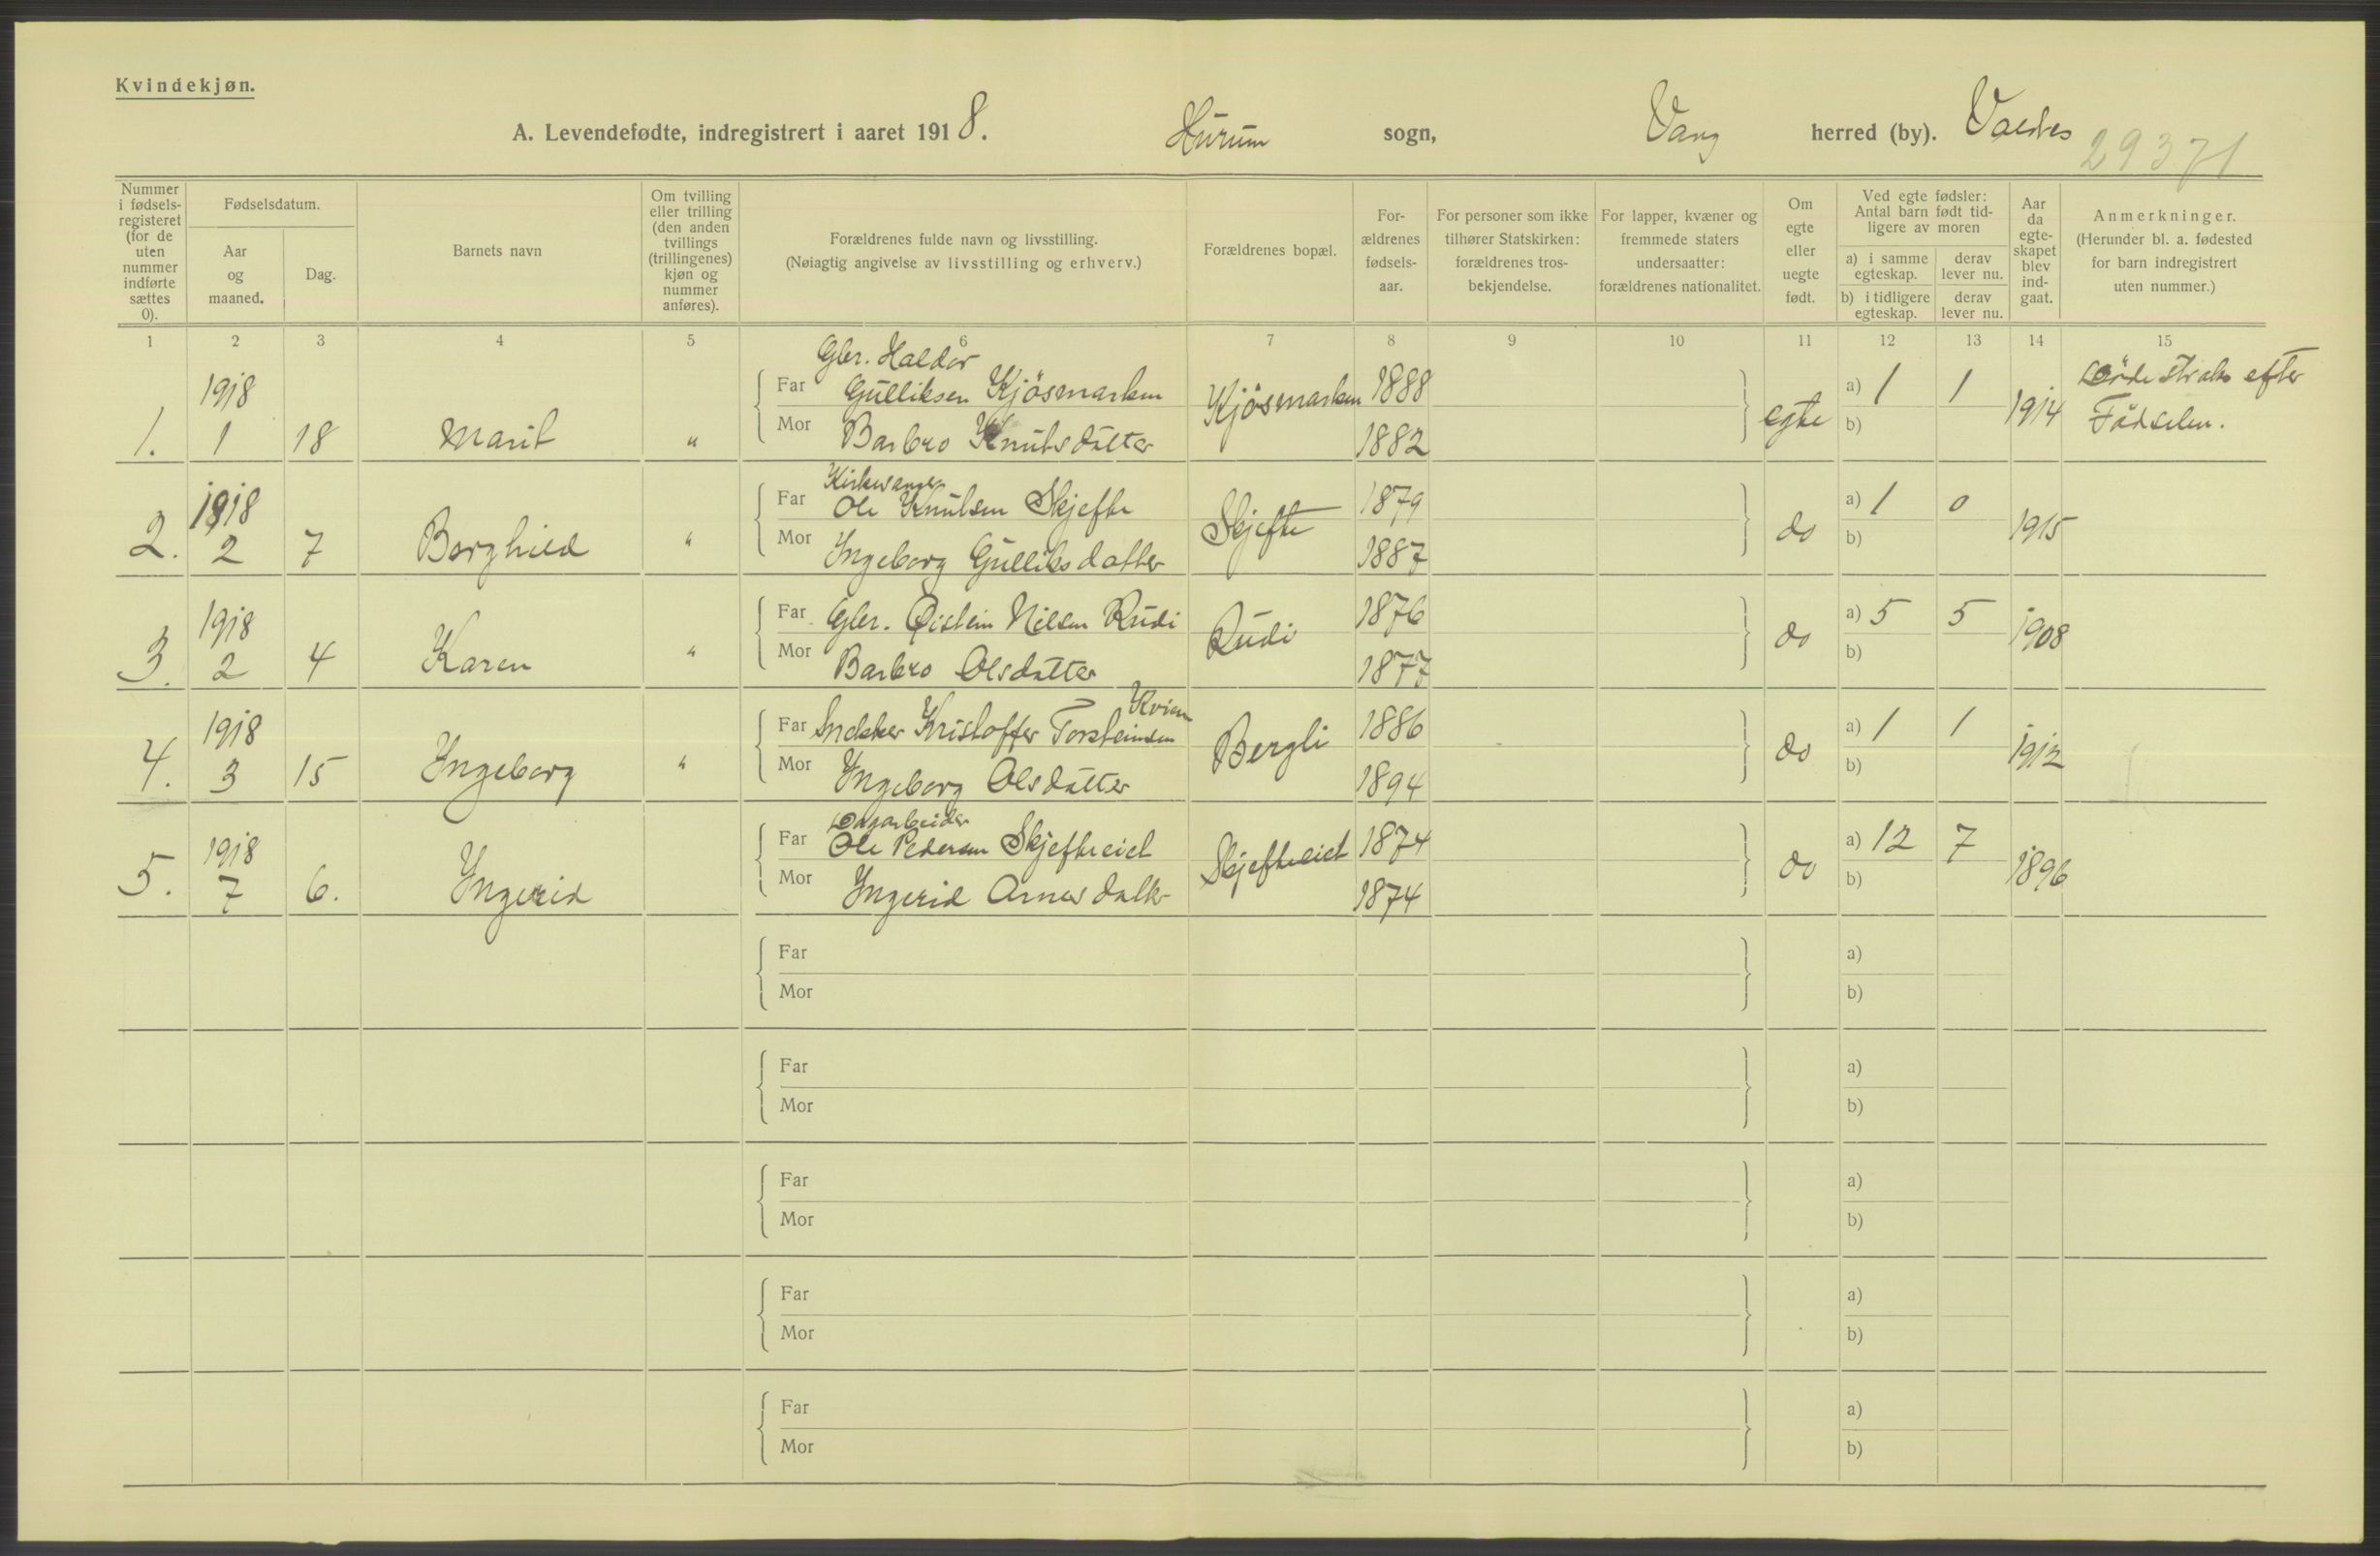 Kvindekjøn.
A. Levendefødte, indregistrert i aaret 1918. Hurum sogn, Vang herred (by). Valdres 29371
Nummer i fødselsregisteret (for de uten nummer indførte sættes 0).
Fødselsdatum.
Aar og maaned.
Dag.
Barnets navn
Om tvilling eller trilling (den anden tvillings (trillingenes) kjøn og nummer anføres).
Forældrenes fulde navn og livsstilling.
(Nøiagtig angivelse av livsstilling og erhverv.)
Forældrenes bopæl.
Forældrenes fødselsaar.
For personer som ikke tilhører Statskirken: forældrenes trosbekjendelse.
For lapper, kvæner og fremmede staters undersaatter: forældrenes nationalitet.
Om egte eller uegte født.
Ved egte fødsler: Antal barn født tidligere av moren
a) i samme egteskap.
derav lever nu.
b) i tidligere egteskap.
derav lever nu.
Aar da egteskapet blev indgaat.
Anmerkninger.
(Herunder bl. a. fødested for barn indregistrert uten nummer.)
1 2 3 4 5 6 7 8 9 10 11 12 13 14 15
1. 1918 1 18 Marit "
Gbr. Haldor
Far Gulliksen Kjösmarken Kjösmarken 1888
Mor Barbro Knutsdatter 1882
egte a) 1 1 b) 1914 Döde straks efter
Födselen.
2. 1918 2 7 Borghild "
Kirkesanger
Far Ole Knutsen Skjefte Skjefte 1879
Mor Ingeborg Gulliksdatter 1887
do a) 1 0 b) 1915
3. 1918 2 4 Karen "
Far Gbr. Øistein Nilsen Rudi Rudi 1876
Mor Barbro Olsdatter 1877
do a) 5 5 b) 1908
4. 1918 3 15 Ingeborg "
Kvien
Far Snekker Kristoffer Torsteinsen Bergli 1886
Mor Ingeborg Olsdatter 1894
do a) 1 1 b) 1912
5. 1918 7 6. Ingerid
Dagarbeider
Far Ole Pedersen Skjefteeiet Skjefteeiet 1874
Mor Ingerid Arnesdatter 1874
do a) 12 7 b) 1896
Far a)
Mor b)
Far a)
Mor b)
Far a)
Mor b)
Far a)
Mor b)
Far a)
Mor b)